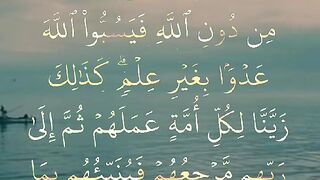 مِن دُونِ ٱللَّهِ فَيَسُبُّوا۟ ٱللَّهَ
عَدْوًۢا بِغَيْرِ عِلْمٍۢ ۗ كَذَٰلِكَ
زَيَّنَّا لِكُلِّ أُمَّةٍ عَمَلَهُمْ ثُمَّ إِلَىٰ
رَبِّهِم مَّرْجِعُهُمْ فَيُنَبِّئُهُم بِمَا